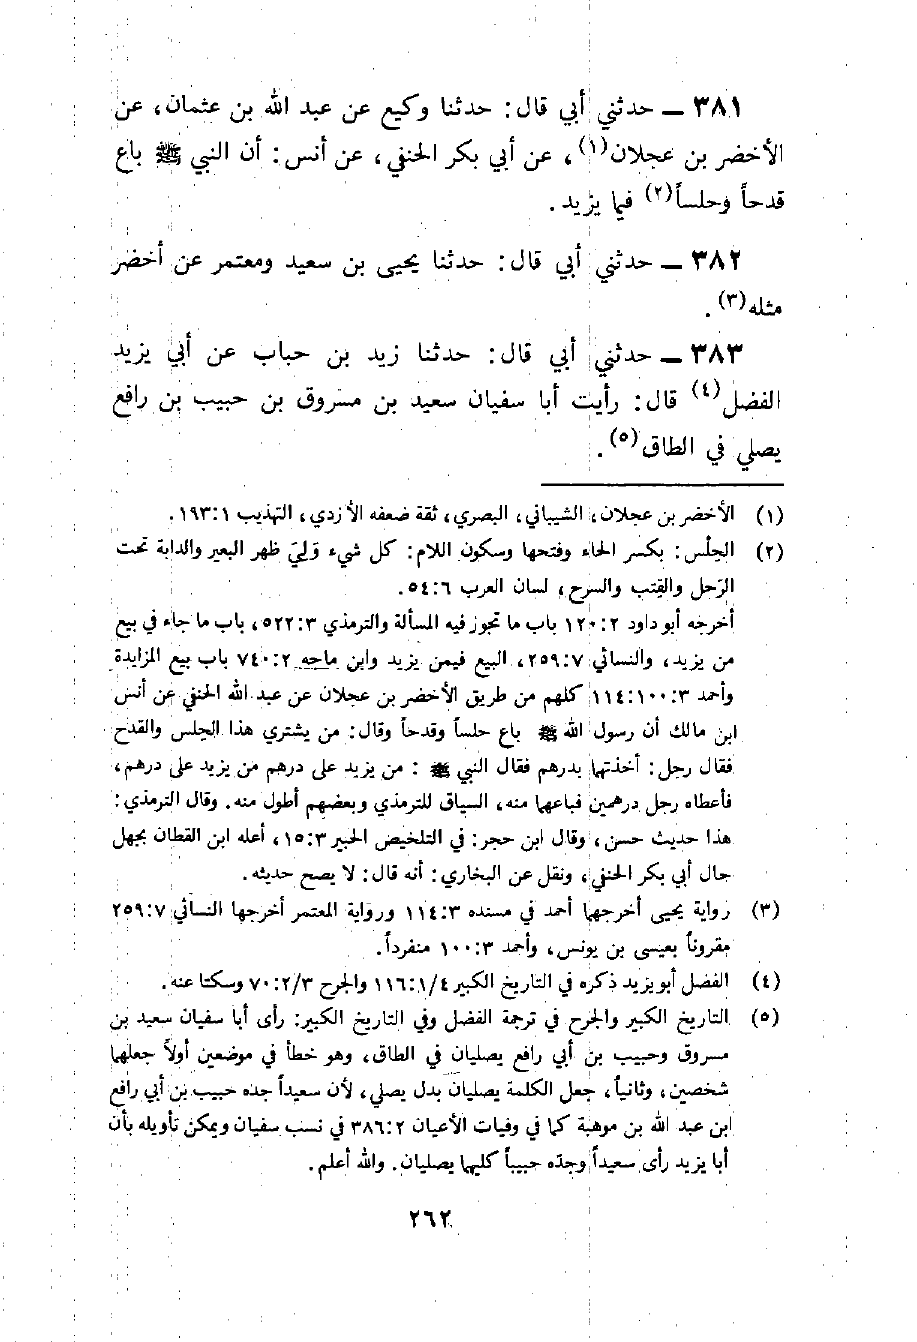 ٣٨١ ــ حدثني أبي قال: حدثنا وكيع عن عبد الله بن عثمان، عن
الأخضر بن عجلان(١)، عن أبي بكر الحنفي، عن أنس: أن النبي ﷺ باع
قدحاً وحلساً(٢) فيما يزيد.
٣٨٢ ــ حدثني أبي قال: حدثنا يحيى بن سعيد ومعتمر عن أخضر
مثله(٣).
٣٨٣ ــ حدثني أبي قال: حدثنا زيد بن حباب عن أبي يزيد
الفضل(٤) قال: رأيت أبا سفيان سعيد بن مسروق بن حبيب بن رافع
يصلي في الطاق(٥).
(١) الأخضر بن عجلان، الشيباني، البصري، ثقة ضعفه الأزدي، التهذيب ١٩٣:١.
(٢) الحِلْس: بكسر الحاء وفتحها وسكون اللام: كل شيء وَلِيَ ظهر البعير والدابة تحت
الرَحل والقِتب والسرج، لسان العرب ٥٤:٦.
أخرجه أبو داود ١٢٠:٢ باب ما تجوز فيه المسألة والترمذي ٥٢٢:٣، باب ما جاء في بيع
من يزيد، والنسائي ٢٥٩:٧، البيع فيمن يزيد وابن ماجه ٧٤٠:٢ باب بيع المزايدة
وأحمد ١١٤:١٠٠:٣ كلهم من طريق الأخضر بن عجلان عن عبد الله الحنفي عن أنس
ابن مالك أن رسول الله ﷺ باع حلساً وقدحاً وقال: من يشتري هذا الحلس والقدح
فقال رجل: أخذتهما بدرهم فقال النبي ﷺ: من يزيد على درهم من يزيد على درهم،
فأعطاه رجل درهمين فباعهما منه، السياق للترمذي وبعضهم أطول منه. وقال الترمذي:
هذا حديث حسن، وقال ابن حجر: في التلخيص الحبير ١٥:٣، أعله ابن القطان بجهل
حال أبي بكر الحنفي، ونقل عن البخاري: أنه قال: لا يصح حديثه.
(٣) رواية يحيى أخرجها أحمد في مسنده ١١٤:٣ ورواية المعتمر أخرجها النسائي ٢٥٩:٧
مقروناً بعيسى بن يونس، وأحمد ١٠٠:٣ منفرداً.
(٤) الفضل أبو يزيد ذكره في التاريخ الكبير ١١٦:١/٤ والجرح ٧٠:٢/٣ وسكتا عنه.
(٥) التاريخ الكبير والجرح في ترجمة الفضل وفي التاريخ الكبير: رأى أبا سفيان سعيد بن
مسروق وحبيب بن أبي رافع يصليان في الطاق، وهو خطأ في موضعين أولاً جعلهما
شخصين، وثانياً، جعل الكلمة يصليان بدل يصلي، لأن سعيداً جده حبيب بن أبي رافع
ابن عبد الله بن موهبة كما في وفيات الأعيان ٣٨٦:٢ في نسب سفيان ويمكن تأويله بأن
أبا يزيد رأى سعيداً وجدّه حبيباً كليهما يصليان. والله أعلم.
٢٦٢